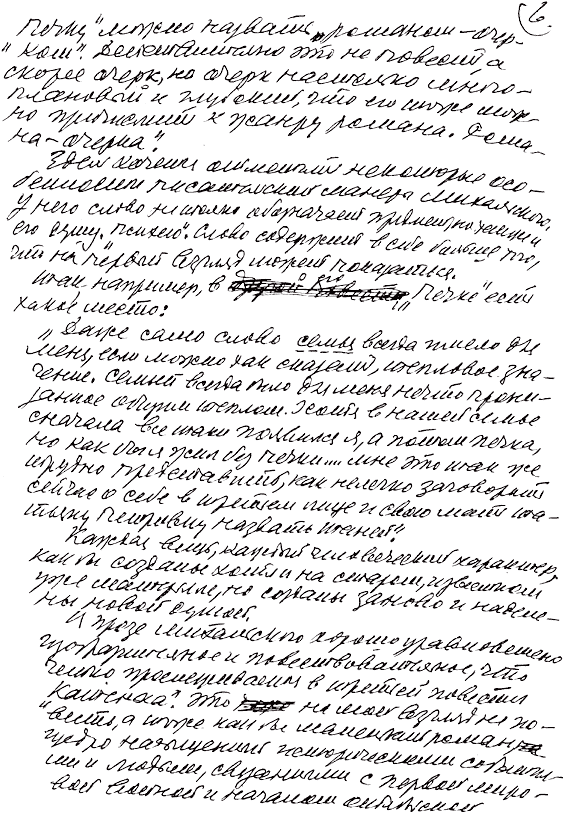 6.
Печку" можно назвать „романом-очер-
"ком". Действительно это не повесть, а
скорее очерк, но очерк настолько много-
плановый и глубокий, что его тоже мож-
но причислить к жанру романа. Рома-
на-очерка".
Здесь хочется отметить некоторые осо-
бенности писательской манеры Михальского.
У него слово не только обозначает предмет, но и
его душу. "Психею". Слово содержит в себе больше того,
что на первый взгляд может показаться.
Так например, в его „Печке" есть
такое место:
„Даже само слово семья всегда имело для
меня, если можно так сказать, тепловое зна-
чение. Семьи всегда было для меня нечто прони-
занное общим теплом. Хотя в нашей семье
сначала все таки появился я, а потом печка,
но как был я жил без печки.... мне это так же
трудно представить, как нелегко заговорить
сейчас о себе в третьем лице и свою мать Та-
тьяну Петровну назвать Таней".
Каждая вещь, каждый человеческий характер,
как бы созданы хотя и на старом, известном
уже материале, но созданы заново и наделе-
ны новой душой.
В прозе хорошо уравновешено
изобразительное и повествовательное, что
четко просматривается в третьей повести
"Катенька". Это на мой взгляд не по-
весть, а тоже как бы маленький роман
щедро насыщенный историческими события-
ми и людьми, связанными с первой миро-
вой войной и началом октябрьской